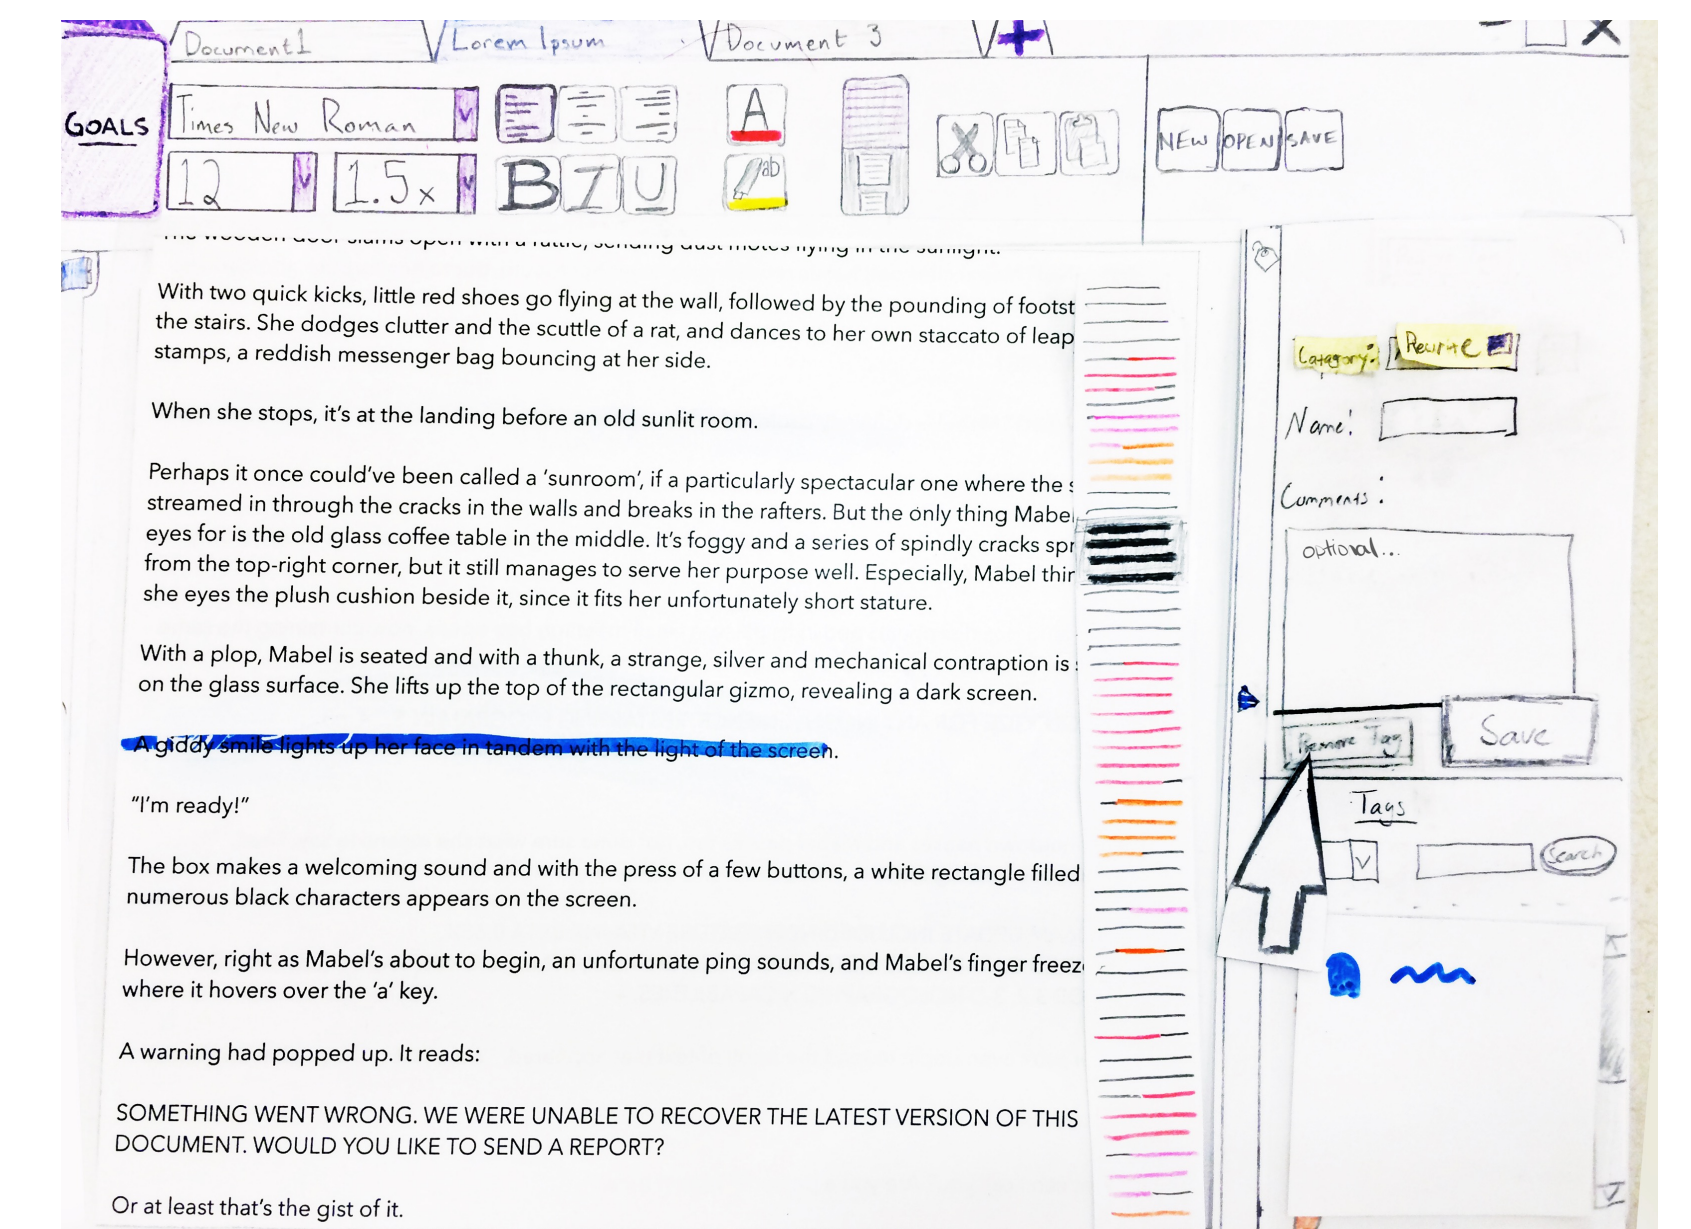 Document1
Lorem Ipsum
Document 3
GOALS
Times New Roman
12
1.5x
B I U
A
ab
NEW OPEN SAVE
The wooden door slams open with a rattle, sending dust motes flying in the sunlight.
With two quick kicks, little red shoes go flying at the wall, followed by the pounding of footst
the stairs. She dodges clutter and the scuttle of a rat, and dances to her own staccato of leap
stamps, a reddish messenger bag bouncing at her side.
When she stops, it's at the landing before an old sunlit room.
Perhaps it once could've been called a 'sunroom', if a particularly spectacular one where the s
streamed in through the cracks in the walls and breaks in the rafters. But the only thing Mabel
eyes for is the old glass coffee table in the middle. It's foggy and a series of spindly cracks spr
from the top-right corner, but it still manages to serve her purpose well. Especially, Mabel thin
she eyes the plush cushion beside it, since it fits her unfortunately short stature.
With a plop, Mabel is seated and with a thunk, a strange, silver and mechanical contraption is
on the glass surface. She lifts up the top of the rectangular gizmo, revealing a dark screen.
A giddy smile lights up her face in tandem with the light of the screen.
"I'm ready!"
The box makes a welcoming sound and with the press of a few buttons, a white rectangle filled
numerous black characters appears on the screen.
However, right as Mabel's about to begin, an unfortunate ping sounds, and Mabel's finger freez
where it hovers over the 'a' key.
A warning had popped up. It reads:
SOMETHING WENT WRONG. WE WERE UNABLE TO RECOVER THE LATEST VERSION OF THIS
DOCUMENT. WOULD YOU LIKE TO SEND A REPORT?
Or at least that's the gist of it.
Category: Rewrite
Name:
Comments:
optional...
Remove Tag
Save
Tags
Search